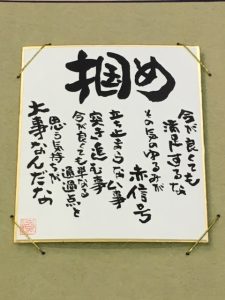 掴め
今が良くても
満足するな
その気のゆるみが
赤信号
立ち止まらない事
突き進む事
今が良くても単なる
通過点と
思う気持ちが
大事なんだなぁ